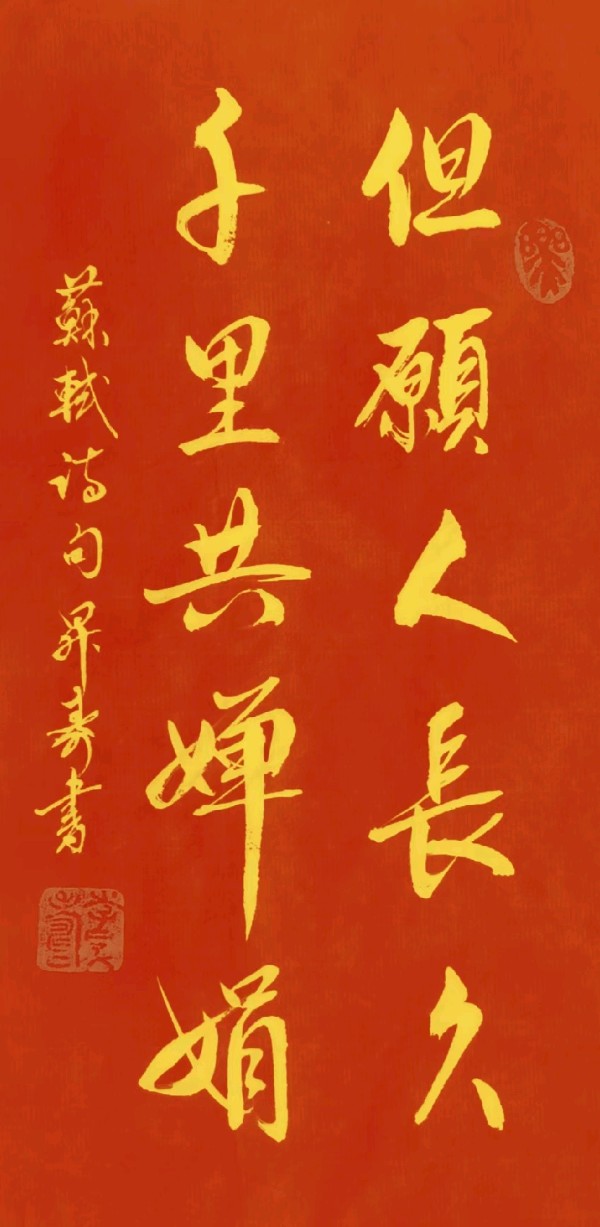 但願人長久
千里共嬋娟
蘇軾诗句昇壽書